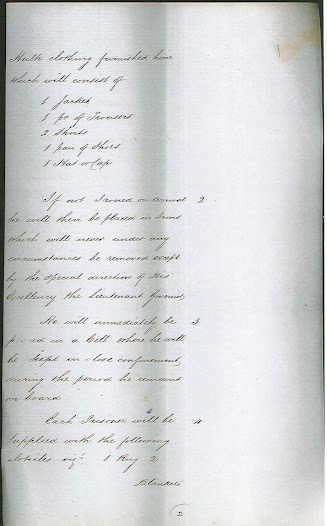 Hulk clothing furnished him
which will consist of
1 Jacket
1 pr of Trousers
2 Shirts
1 pair of Shoes
1 Hat or Cap
If not Ironed on arrival 2
he will then be placed in Irons
which will never under any
circumstances be removed except
by the special direction of His
Excellency the Lieutenant Governor,
He will immediately be 3
placed in a Cell where he will
be kept in close confinement,
during the period he remains
on board
Each Prisoner will be 4
supplied with the following
Articles viz: 1 Rug 2
Blankets
2